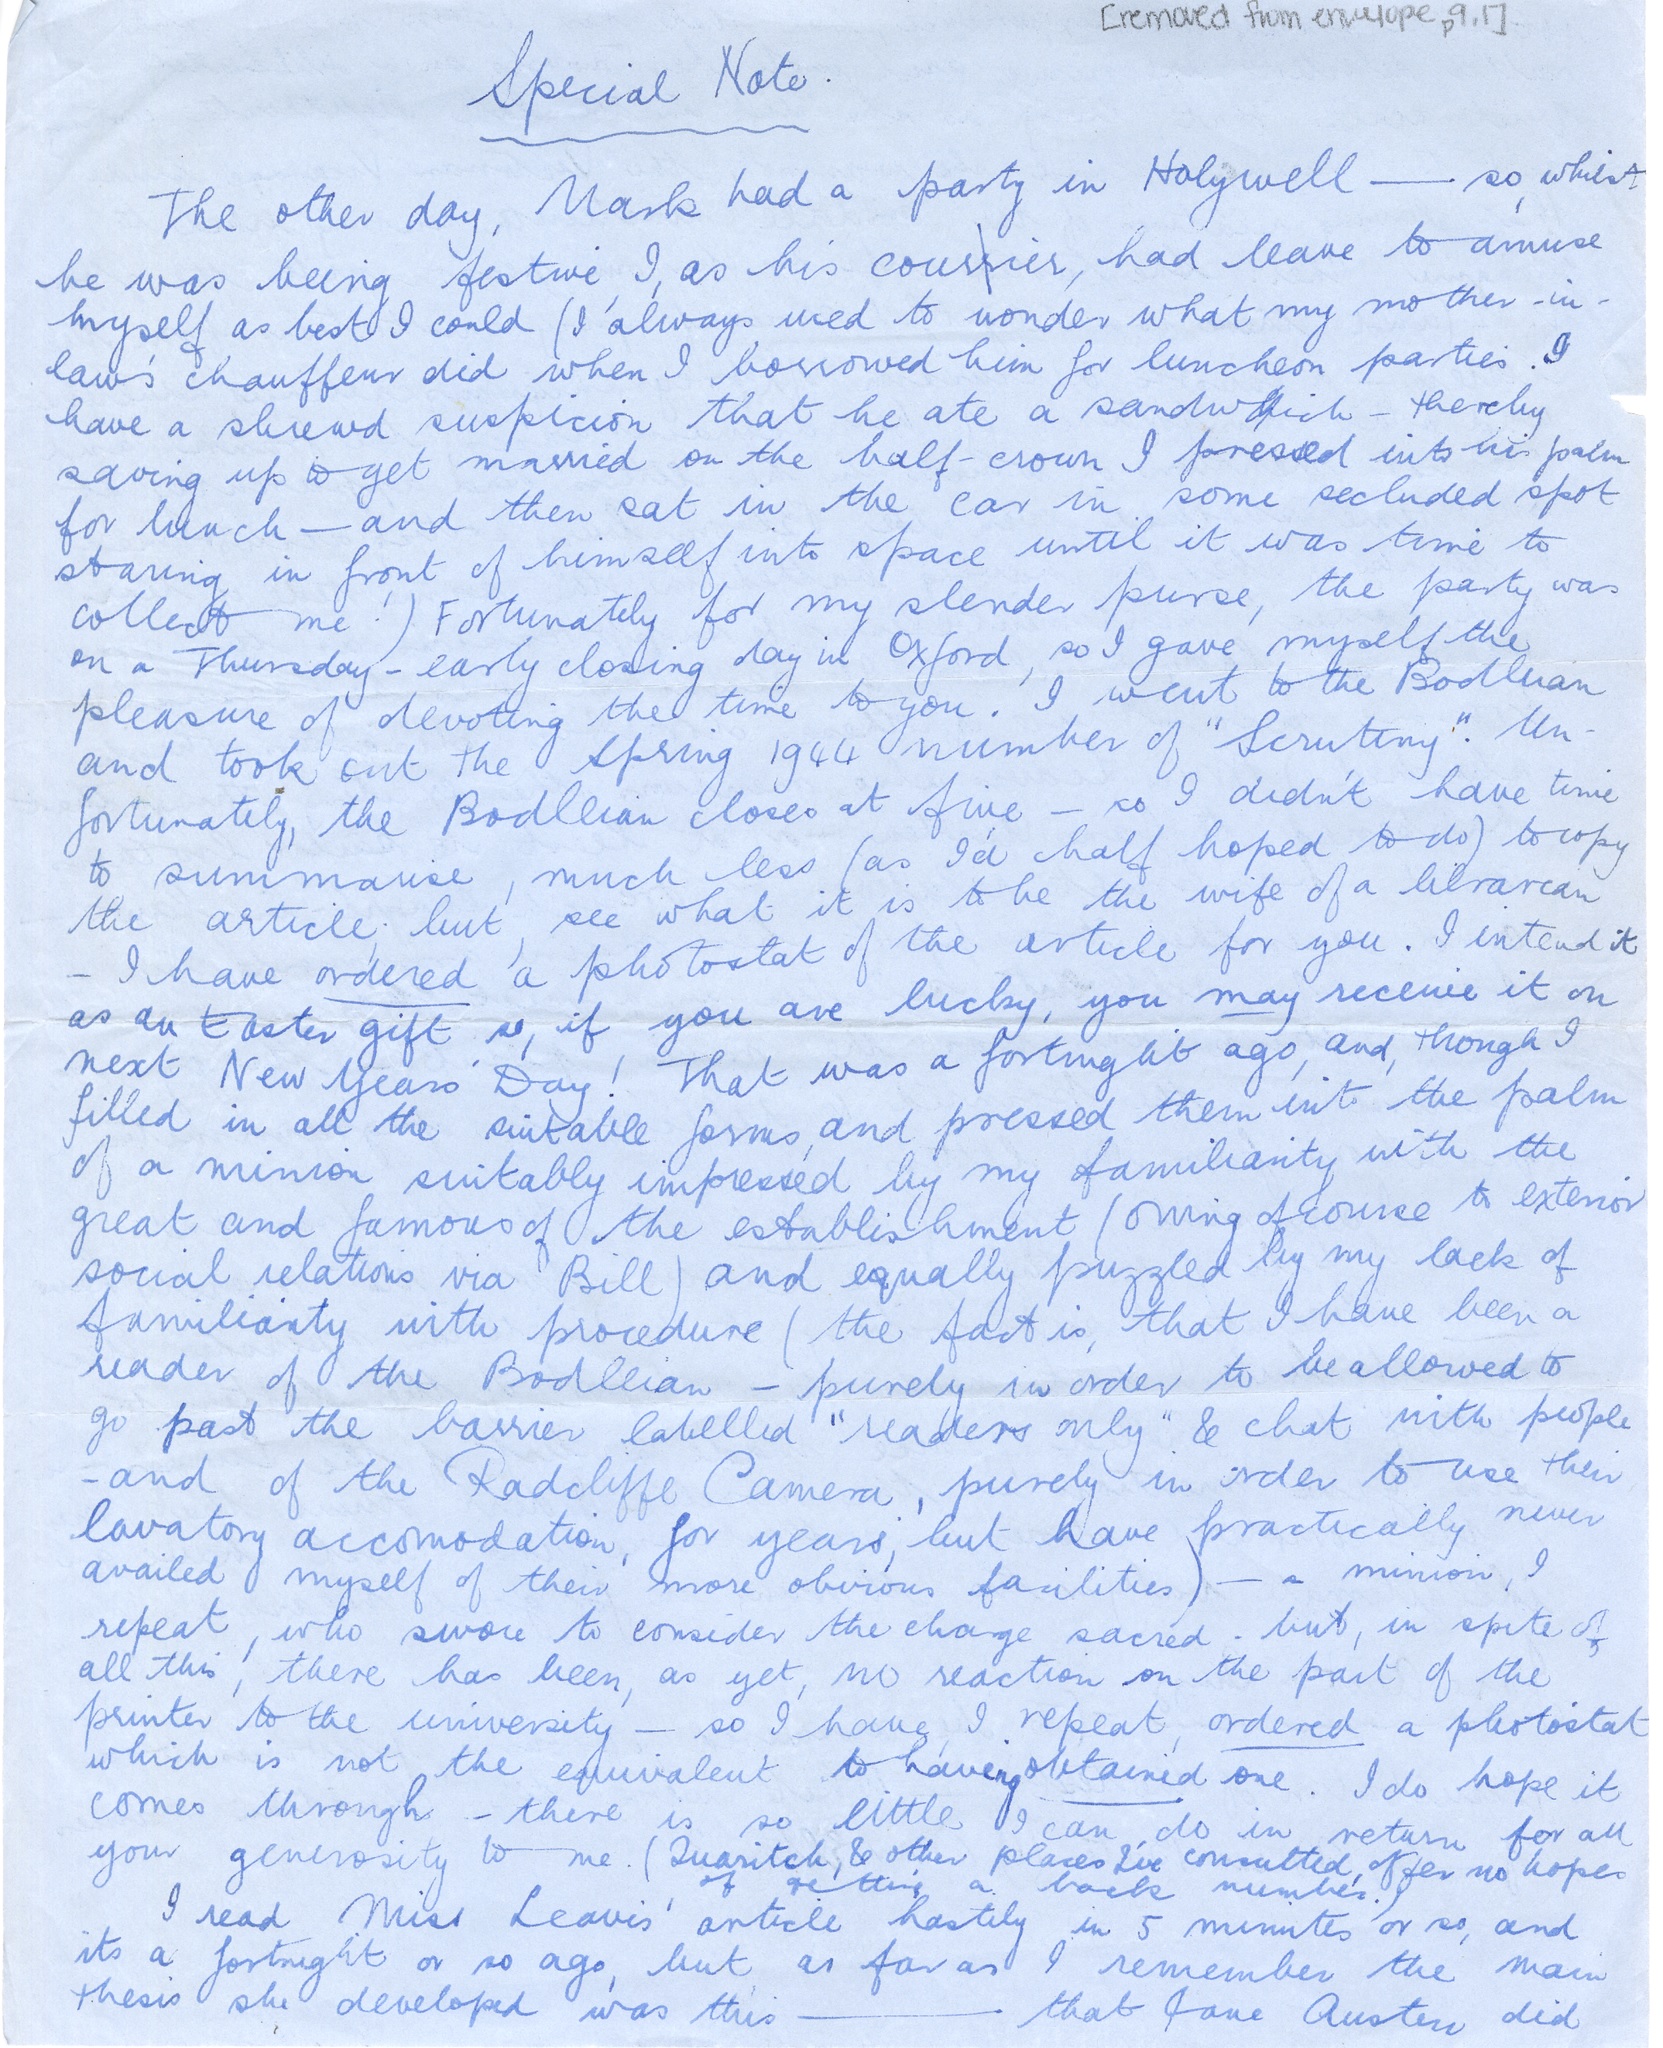 [removed from envelope, p9.1]
Special Note.
The other day, Mark had a party in Holywell — so, whilst
he was being festive I, as his courier, had leave to amuse
myself as best I could (I always used to wonder what my mother-in-
law's chauffeur did when I borrowed him for luncheon parties. I
have a shrewd suspicion that he ate a sandwich - thereby
saving up to get married on the half-crown I pressed into his palm
for lunch — and then sat in the car in some secluded spot
staring in front of himself into space until it was time to
collect me!) Fortunately for my slender purse, the party was
on a Thursday - early closing day in Oxford, so I gave myself the
pleasure of devoting the time to you. I went to the Bodleian
and took out the Spring 1944 number of "Scrutiny". Un-
fortunately, the Bodleian closes at five — so I didn't have time
to summarise, much less (as I'd half hoped to do) to copy
the article; but, see what it is to be the wife of a librarian
- I have ordered a photostat of the article for you. I intend it
as an Easter gift so, if you are lucky, you may receive it on
next New Years' Day! That was a fortnight ago, and, though I
filled in all the suitable forms, and pressed them into the palm
of a minion suitably impressed by my familiarity with the
great and famous of the establishment (owing of course to exterior
social relations via Bill) and equally puzzled by my lack of
familiarity with procedure (the fact is, that I have been a
reader of the Bodleian - purely in order to be allowed to
go past the barrier labelled "readers only" & chat with people
- and of the Radcliffe Camera, purely in order to use their
lavatory accomodation, for years, but have practically never
availed myself of their more obvious facilities) — a minion, I
repeat, who swore to consider the charge sacred - but, in spite of
all this, there has been, as yet, no reaction on the part of the
printer to the university — so I have, I repeat, ordered a photostat
which is not the equivalent to having obtained one. I do hope it
comes through - there is so little I can do in return for all
your generosity to me. (Quaritch, & other places I've consulted, offer no hopes
of getting a back number.)
I read Miss Leavis' article hastily in 5 minutes or so, and
its a fortnight or so ago, but as far as I remember the main
thesis she developed was this — that Jane Austen did